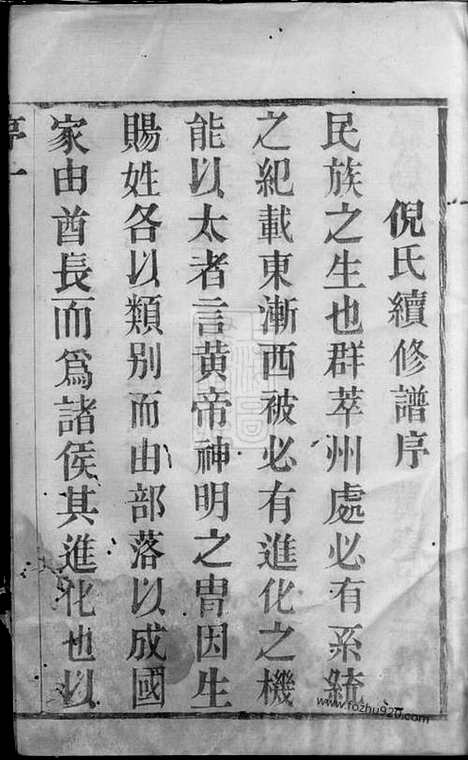 倪氏續修譜序
民族之生也群萃州處必有系統
之紀載東漸西被必有進化之機
能以太者言黄帝神明之胄因生
賜姓各以類别而由部落以成國
家由酋長而爲諸侯其進化也以
www.fozhu920.com